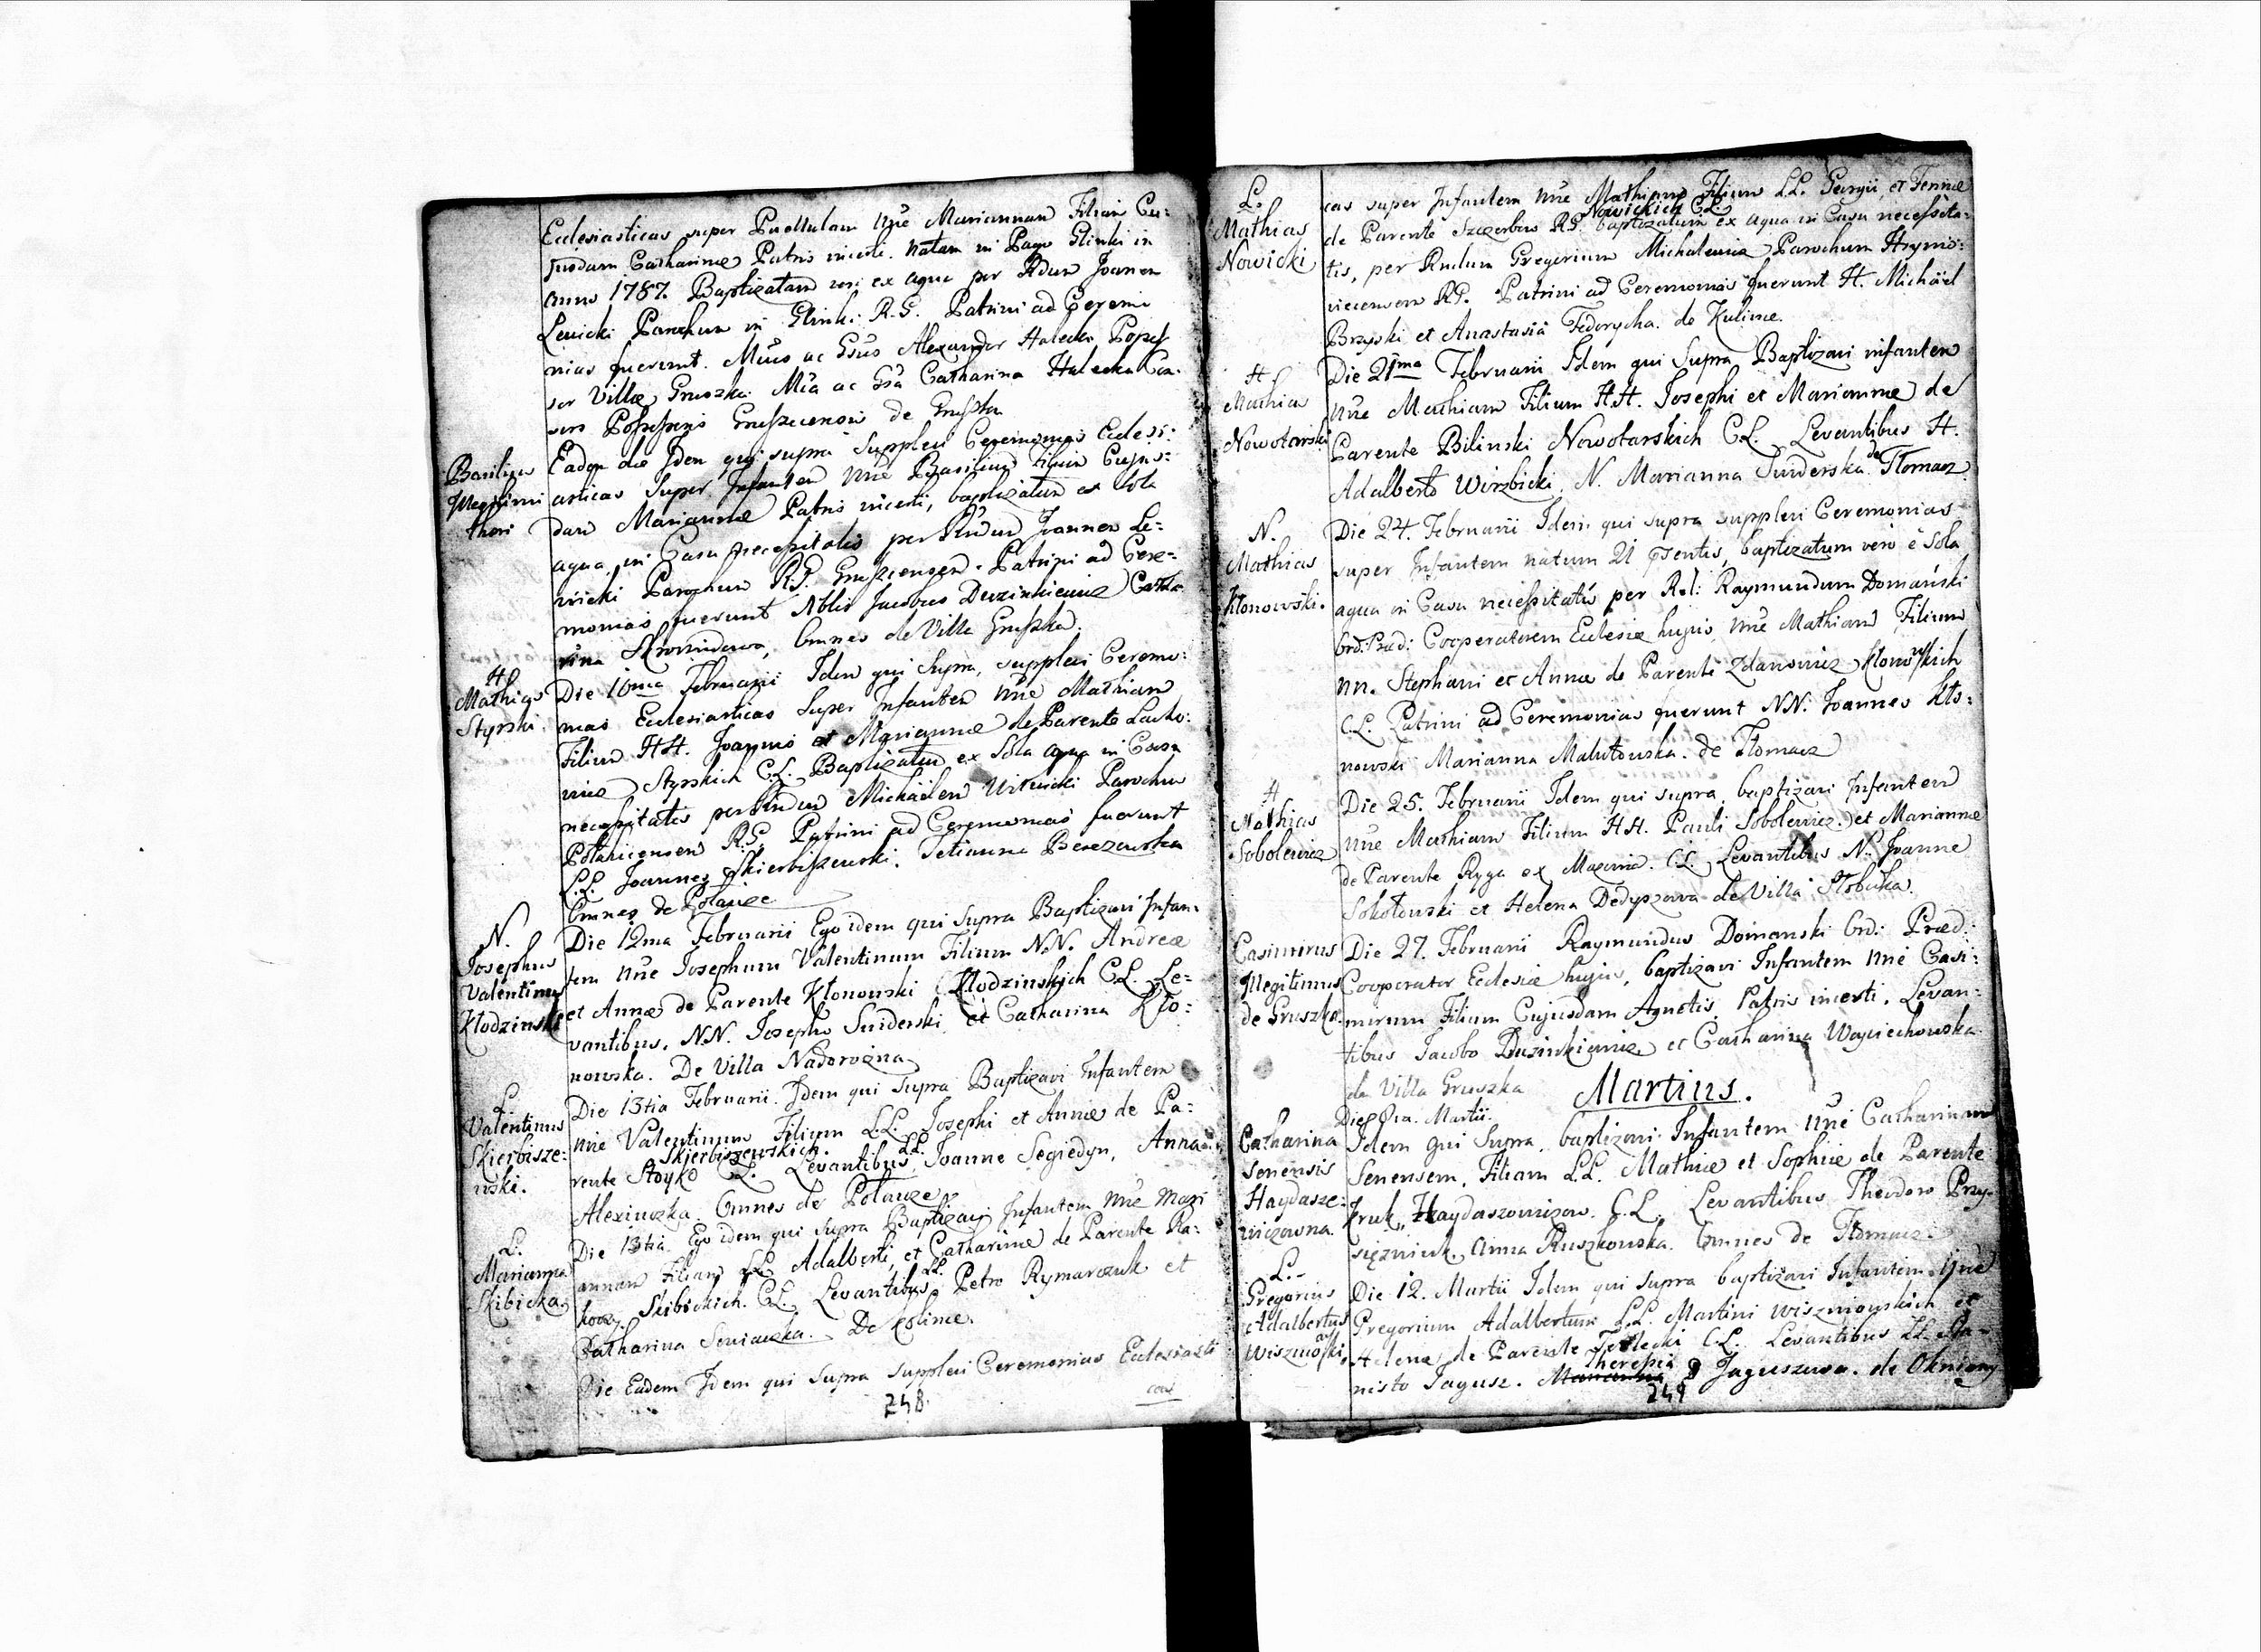 Ecclesiasticas super Puellulam nne Mariannam Filiam Cu=
jusdam Catharinæ Patris incerti. natam in Pago Glinki in
anno 1787. Baptizatam vero ex aqua per Rdum Joanem
Lewicki Parochum in Glinki R.G. Patrini ad Ceremo
nias fuerunt. Mcus ac Gsus Alexander Halecki Posses
sor Villæ Gruszka. Mca ac Gsa Catharina Halecka Con
sors Possessoris Gruszecensis de Gruszka
Basilius
Illegitimi
thori
Eadem die Idem qui supra supplevi Ceremonias Eclesi:
asticas super Infantem nne Basilium filium Cujus:
dam Mariannæ Patris incerti, baptizatum ex sola
aqua in Casu necessitatis per Rndum Joannem Le=
wicki Parochum R.G. Gruszecensem. Patrini ad Cere=
monias fuerunt Nblis Jacobus Duzinkiewicz Catha
rina omnes de Villa Gruszka.
H
Mathias
Styrski
Die 10ma Februarii Idem qui supra, supplevi Ceremo:
nias Ecclesiasticas super Infantem nne Mathiam
Filium H.H. Joannis et Mariannæ de Parente Lasko:
wicz Styrskich C.L. Baptizatum ex sola aqua in Casu
necessitatis per Rndum Michaëlem Witwicki Parochum
R.G. Patrini ad Ceremonias fuerunt
L.L. Joannes Skierbiszewski. Tetianna Berezowska
Omnes de Poławce
N.
Josephus
Valentinus
Kłodzinski
Die 12ma Februarii Ego idem qui supra Baptizavi Infan:
tem nne Josephum Valentinum Filium N.N. Andreæ
et Annæ de Parente Kłonowski Kłodzinskich C.L. Le=
vantibus. N.N. Josepho Swiderski et Catharina Kło:
nowska. De Villa Nadorożna
L
Valentinus
Skierbisze:
wski.
Die 13tia Februarii. Idem qui supra Baptizavi Infantem
nne Valentinum Filium L.L. Josephi et Annæ de Pa:
Skierbiszewskich. LL.
rente Stoyko C.L. Levantibus Joanne Segiedyn, Anna
Alexiuczka Omnes de Poławce
L.
Marianna
Skibicka
Die 13tia Ego idem qui supra Baptizavi Infantem nne Mari
annam Filiam LL Adalberti, et Catharinæ de Parente Ra:
LL.
Skibickich. C.L. Levantibus Petro Rymarczuk et
Catharina De Colince.
Die Eadem Idem qui supra supplevi Ceremonias Eclesiasti
cas
248.
L.
Mathias
Nowicki
cas super Infantem nne Mathiam Filium L.L. Georgii, et Fennæ
Nowickich C.L.
de Parente Szczerbiw R.G. baptizatum ex aqua in Casu necessita=
tis, per Rndum Gregorium Michalewicz Parochum Hrymo:
wiecensem R.G. Patrini ad Ceremonias fuerunt H. Michäel
Brzyski et Anastasia Fedorycha. de Kulince.
H
Mathias
Nowotarski
Die 21ma Februarii Idem qui supra Baptizavi infantem
nne Mathiam Filium H.H. Josephi et Mariannæ de
Parente Bilinski Nowotarskich C.L. Levantibus H.
Adalberto Wirzbicki, N. Marianna Swiderska de Tłomacz
N.
Mathias
Kłonowski.
Die 24. Februarii Idem qui supra supplevi Ceremonias
super Infantem natum 21 psentis, baptizatum vero è sola
aqua in Casu necessitatis per R.d: Raymundum Domański
Ord: Præd: Cooperatorem Eclesiæ hujus, nne Mathiam Filium
nn. Stephani et Annæ de Parente Zdanowicz Kłonowskich
C.L. Patrini ad Ceremonias fuerunt N.N. Joannes Kło:
nowski Marianna Małutowska. de Tłomacz
H
Mathias
Sobolewicz
Die 25. Februarii Idem qui supra, baptizavi Infantem
nne Mathiam Filium H.H. Pauli Sobolewicz et Mariannæ
de Parente Ryga ex Mazonia. C.L. Levantibus N. Joanne
Sokołowski et Helena Dedyszowa de Villa Słobutka
Casimirus
Illegitimus
de Gruszka
Die 27. Februarii Raymundus Domanski Ord: Præd:
Cooperator Eclesiæ hujus, baptizavi Infantem nne Casi:
mirum Filium Cujusdam Agnetis, Patris incerti. Levan:
tibus Jacobo Duzinkiewicz et Catharina Woyciechowska
de Villa Gruszka
Martius.
Catharina
Senensis
Haydasze:
wiczowna.
Martii.
Idem qui supra, baptizavi Infantem nne Catharinam
Senensem, Filiam L.L. Mathiæ et Sophiæ de Parente
Haydaszowiczow. C.L. Levantibus Theodoro Przy
siężniuk. Anna Ruszkowska. Omnes de Tłomacz
L.
Gregorius
Adalbertus
Wiszniowski
Die 12. Martii Idem qui supra baptizavi Infantem nne
Gregorium Adalbertum L.L. Martini Wiszniowskich et
Helenæ de Parente Terlecki C.L. Levantibus LL. Da=
Theresia
nisło Jagusz. Jaguszowa. de Okniany
249